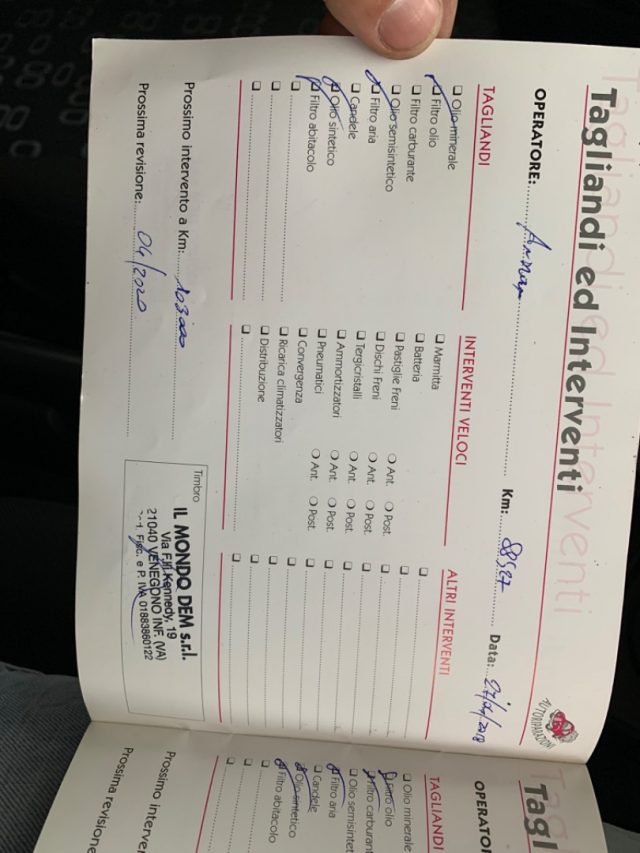 Tagliandi ed Interventi
OPERATORE:
Km: 88527 Data: 27/04/2018
AUTORIPARAZIONI
TAGLIANDI
Olio minerale
Filtro olio
Filtro carburante
Olio semisintetico
Filtro aria
Candele
Olio sintetico
Filtro abitacolo
INTERVENTI VELOCI
Marmitta
Batteria
Pastiglie Freni Ant. Post.
Dischi Freni Ant. Post.
Tergicristalli Ant. Post.
Ammortizzatori Ant. Post.
Pneumatici Ant. Post.
Convergenza
Ricarica climatizzatori
Distribuzione
ALTRI INTERVENTI
Prossimo intervento a Km: 103000
Prossima revisione: 04/2020
Timbro
IL MONDO DEM s.r.l.
Via F.lli Kennedy, 19
21040 VENEGONO INF. (VA)
Fisc. e P. IVA 01883860122
Tagl
OPERATOR
TAGLIANDI
Olio minerale
Filtro olio
Filtro carburant
Olio semisintet
Filtro aria
Candele
Olio sintetico
Filtro abitacolo
Prossimo interven
Prossima revisione